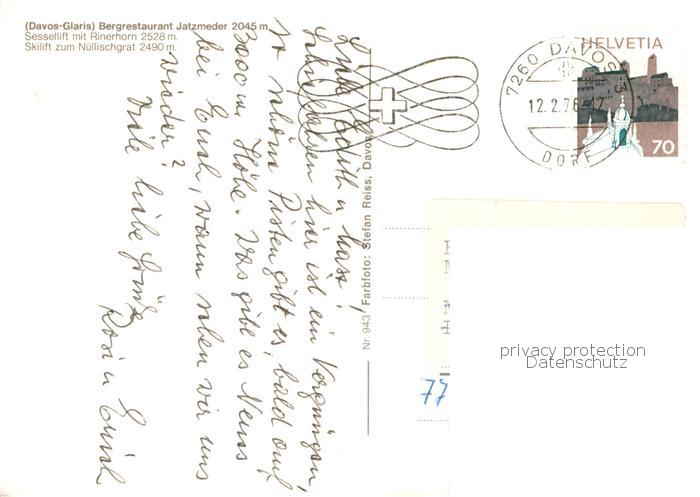 (Davos-Glaris) Bergrestaurant Jatzmeder 2045 m.
Sessellift mit Rinerhorn 2528 m.
Skilift zum Nüllischgrat 2490 m.
HELVETIA
70
7260 DAVOS 3
12.2.76-17
DORF
Liebe Edith u
hier ist ein Vergnügen,
so schöne Pisten gibt es, bald auf
3000 m Höhe. Was gibt es Neues
bei Euch, wann sehen wir uns
wieder?
Viele liebe Grüsse
Rosi u Erich
Nr. 943 Farbfoto: Stefan Reiss, Davos
77
privacy protection
Datenschutz